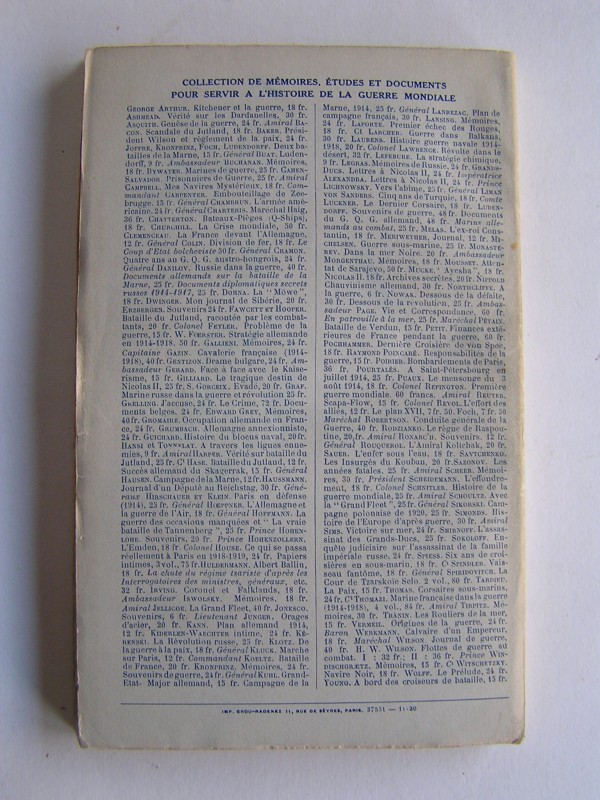 COLLECTION DE MÉMOIRES, ÉTUDES ET DOCUMENTS
POUR SERVIR A L'HISTOIRE DE LA GUERRE MONDIALE
GEORGE ARTHUR. Kitchener et la guerre, 18 fr.
ASHMEAD. Vérité sur les Dardanelles, 30 fr.
ASQUITH. Genèse de la guerre, 24 fr. Amiral BA-
CON. Scandale du Jutland, 18 fr. BAKER. Prési-
dent Wilson et règlement de la paix, 24 fr.
JOFFRE, KRONPRINZ, FOCH, LUDENDORFF. Deux ba-
tailles de la Marne, 15 fr. Général BUAT. Luden-
dorff, 9 fr. Ambassadeur BUCHANAN. Mémoires,
18 fr. BYWATER. Marines de guerre, 25 fr. CAHEN-
SALVADOR. Prisonniers de guerre, 25 fr. Amiral
CAMPBELL. Mes Navires Mystérieux, 18 fr. Com-
mandant CARPENTER. Embouteillage de Zee-
brugge. 15 fr. Général CHAMBRUN. L'armée amé-
ricaine. 24 fr. Général CHARTERIS. Maréchal Haig,
36 fr. CHATTERTON. Bateaux-Pièges (Q-Ships),
18 fr. CHURCHILL. La Crise mondiale, 50 fr.
CLEMENCEAU. La France devant l'Allemagne,
12 fr. Général COLIN. Division de fer, 18 fr. Le
Coup d'Etat bolcheviste 50 fr. Général CRAMON.
Quatre ans au G. Q. G. austro-hongrois, 24 fr.
Général DANILOV. Russie dans la guerre, 40 fr.
Documents allemands sur la bataille de la
Marne, 25 fr. Documents diplomatiques secrets
russes 1914-1917, 25 fr. DOHNA. La "Möwe",
18 fr. DWINGER. Mon journal de Sibérie, 20 fr.
ERZBERGER. Souvenirs 24 fr. FAWCETT et HOOPER.
Bataille du Jutland, racontée par les combat-
tants, 20 fr. Colonel FEYLER. Problème de la
guerre, 15 fr. W. FŒRSTER. Stratégie allemande
en 1914-1918. 50 fr. GALLIENI. Mémoires, 24 fr.
Capitaine GAZIN. Cavalerie française (1914-
1918), 40 fr. GENTIZON. Drame bulgare, 24 fr. Am-
bassadeur GERARD. Face à face avec le Kaise-
risme, 15 fr. GILLIARD. Le tragique destin de
Nicolas II, 25 fr. S. GORGUES. Evadé, 20 fr. GRAF.
Marine russe dans la guerre et révolution 25 fr.
GRELLING. J'accuse, 24 fr. Le Crime, 72 fr. Docu-
ments belges. 24 fr. EDWARD GREY, Mémoires,
40 fr. GROMAIRE. Occupation allemande en Fran-
ce, 24 fr. GRUMBACH. Allemagne annexionniste,
24 fr. GUICHARD. Histoire du blocus naval, 20 fr.
HANSI et TONNELAT. A travers les lignes enne-
mies, 9 fr. Amiral HARPER. Vérité sur bataille du
Jutland, 25 fr. Ct HASE. Bataille du Jutland, 12 fr.
Succès allemand du Skagerrak, 15 fr. Général
HAUSEN. Campagne de la Marne, 12 fr. HAUSSMANN.
Journal d'un Député au Reichstag, 30 fr. Géné-
raux HIRSCHAUER ET KLEIN. Paris en défense
(1914), 25 fr. Général HOEPPNER. L'Allemagne et
la guerre de l'Air, 18 fr. Général HOFFMANN. La
guerre des occasions manquées et "La vraie
bataille de Tannenberg", 25 fr. Prince HOHEN-
LOHE. Souvenirs, 20 fr. Prince HOHENZOLLERN.
L'Emden, 18 fr. Colonel HOUSE. Ce qui se passa
réellement à Paris en 1918-1919, 24 fr. Papiers
intimes, 3 vol., 75 fr. HULDERMANN. Albert Ballin,
18 fr. La chute du régime tsariste d'après les
Interrogatoires des ministres, généraux, etc.
32 fr. IRVING. Coronel et Falklands, 18 fr.
Ambassadeur ISWOLSKY. Mémoires, 18 fr.
Amiral JELLICOE. La Grand Fleet, 40 fr. JONESCO.
Souvenirs, 6 fr. Lieutenant JUNGER. Orages
d'acier, 20 fr. KANN. Plan allemand 1914,
12 fr. KIDERLEN-WAECHTER intime, 24 fr. KÉ-
RENSKI. La Révolution russe, 25 fr. KLOTZ. De
la guerre à la paix, 18 fr. Général KLUCK. Marche
sur Paris, 12 fr. Commandant KOELTZ. Bataille
de France, 20 fr. KRONPRINZ, Mémoires, 24 fr.
Souvenirs de guerre, 24 fr. Général KUHL. Grand-
Etat-Major allemand, 15 fr. Campagne de la
Marne, 1914, 25 fr. Général LANREZAC. Plan de
campagne français, 30 fr. LANSING. Mémoires,
24 fr. LAPORTE. Premier échec des Rouges,
18 fr. Ct LARCHER. Guerre dans Balkans,
30 fr. LAURENS. Histoire guerre navale 1914-
1918, 20 fr. Colonel LAWRENCE. Révolte dans le
désert, 32 fr. LEFEBURE. La stratégie chimique,
9 fr. LEGRAS. Mémoires de Russie, 24 fr. GRANDS-
DUCS. Lettres à Nicolas II, 24 fr. Impératrice
ALEXANDRA. Lettres à Nicolas II, 24 fr. Prince
LICHNOWSKY. Vers l'abîme, 25 fr. Général LIMAN
VON SANDERS. Cinq ans de Turquie, 18 fr. Comte
LUCKNER. Le Dernier Corsaire, 18 fr. LUDEN-
DORFF. Souvenirs de guerre, 48 fr. Documents
du G. Q. G. allemand, 48 fr. Marins alle-
mands au combat, 25 fr. MELAS. L'ex-roi Cons-
tantin, 18 fr. MERIWETHER. Journal, 12 fr. MI-
CHELSEN. Guerre sous-marine, 25 fr. MONASTE-
REV. Dans la mer Noire. 20 fr. Ambassadeur
MORGENTHAU. Mémoires, 18 fr. MOUSSET. Atten-
tat de Sarajevo, 50 fr. MUCKE. "Ayesha", 18 fr.
NICOLAS II. 18 fr. Archives secrètes, 20 fr. NIPPOLD
Chauvinisme allemand, 30 fr. NORTHCLIFFE, A
la guerre, 6 fr. NOWAK. Dessous de la défaite,
30 fr. Dessous de la révolution, 25 fr. Ambas-
sadeur PAGE. Vie et Correspondance, 60 fr.
En patrouille à la mer, 25 fr. Maréchal PÉTAIN.
Bataille de Verdun, 15 fr. PETIT. Finances exté-
rieures de France pendant la guerre, 60 fr.
POCHHAMMER. Dernière Croisière de von Spee,
18 fr. RAYMOND POINCARÉ. Responsabilités de la
guerre, 15 fr. POIRIER. Bombardements de Paris,
36 fr. POURTALÈS. A Saint-Pétersbourg en
juillet 1914, 25 fr. PUAUX. Le mensonge du 3
août 1914, 18 fr. Colonel REPINGTON. Première
guerre mondiale. 60 francs. Amiral REUTER.
Scapa-Flow, 15 fr. Colonel REVOL. L'effort des
alliés, 12 fr. Le plan XVII, 7 fr. 50. Foch, 7 fr. 50
Maréchal ROBERTSON. Conduite générale de la
Guerre, 40 fr. RODZIANKO. Le règne de Raspou-
tine, 20 fr. Amiral RONARC'H. Souvenirs. 12 fr.
Général ROUQUEROL. L'Amiral Koltchak, 20 fr.
SAUER. L'enfer sous l'eau, 18 fr. SAVTCHENKO.
Les Insurgés du Kouban, 20 fr. SAZONOV. Les
années fatales, 25 fr. Amiral SCHEER. Mémoi-
res, 30 fr. Président SCHEIDEMANN. L'effondre-
ment, 18 fr. Colonel SCHNITLER. Histoire de la
guerre mondiale, 25 fr. Amiral SCHOULTZ. Avec
la "Grand Fleet", 25 fr. Général SIKORSKI. Cam-
pagne polonaise de 1920, 25 fr. SIMONDS. His-
toire de l'Europe d'après guerre, 30 fr. Amiral
SIMS. Victoire sur mer, 24 fr. SMIRNOFF. L'assas-
sinat des Grands-Ducs, 25 fr. SOKOLOFF. En-
quête judiciaire sur l'assassinat de la famille
impériale russe, 24 fr. SPIESS. Six ans de croi-
sières en sous-marin, 18 fr. O SPINDLER. Vais-
seau fantôme, 18 fr. Général SPIRIDOVITCH. La
Cour de Tzarskoïe Selo. 2 vol., 80 fr. TARDIEU.
La Paix, 15 fr. THOMAS. Corsaires sous-marins,
24 fr. Ct THOMAZI. Marine française dans la guerre
(1914-1918), 4 vol., 84 fr. Amiral TIRPITZ. Mé-
moires, 30 fr. THANIN. Les Rouliers de la mer,
15 fr. VERMEIL. Origines de la guerre, 24 fr.
Baron WERKMANN. Calvaire d'un Empereur,
18 fr. Maréchal WILSON. Journal de guerre,
40 fr. H. W. WILSON. Flottes de guerre au
combat. I : 32 fr ; II : 36 fr. Prince WIN-
DISCHGRÆTZ, Mémoires, 15 fr. Ct WITSCHETZKY.
Navire Noir, 18 fr. WOLFF. Le Prélude, 24 fr.
YOUNG. A bord des croiseurs de bataille, 15 fr.
IMP. GROU-RADENEZ 11, RUE DE SÈVRES, PARIS. 37531 — 11-30